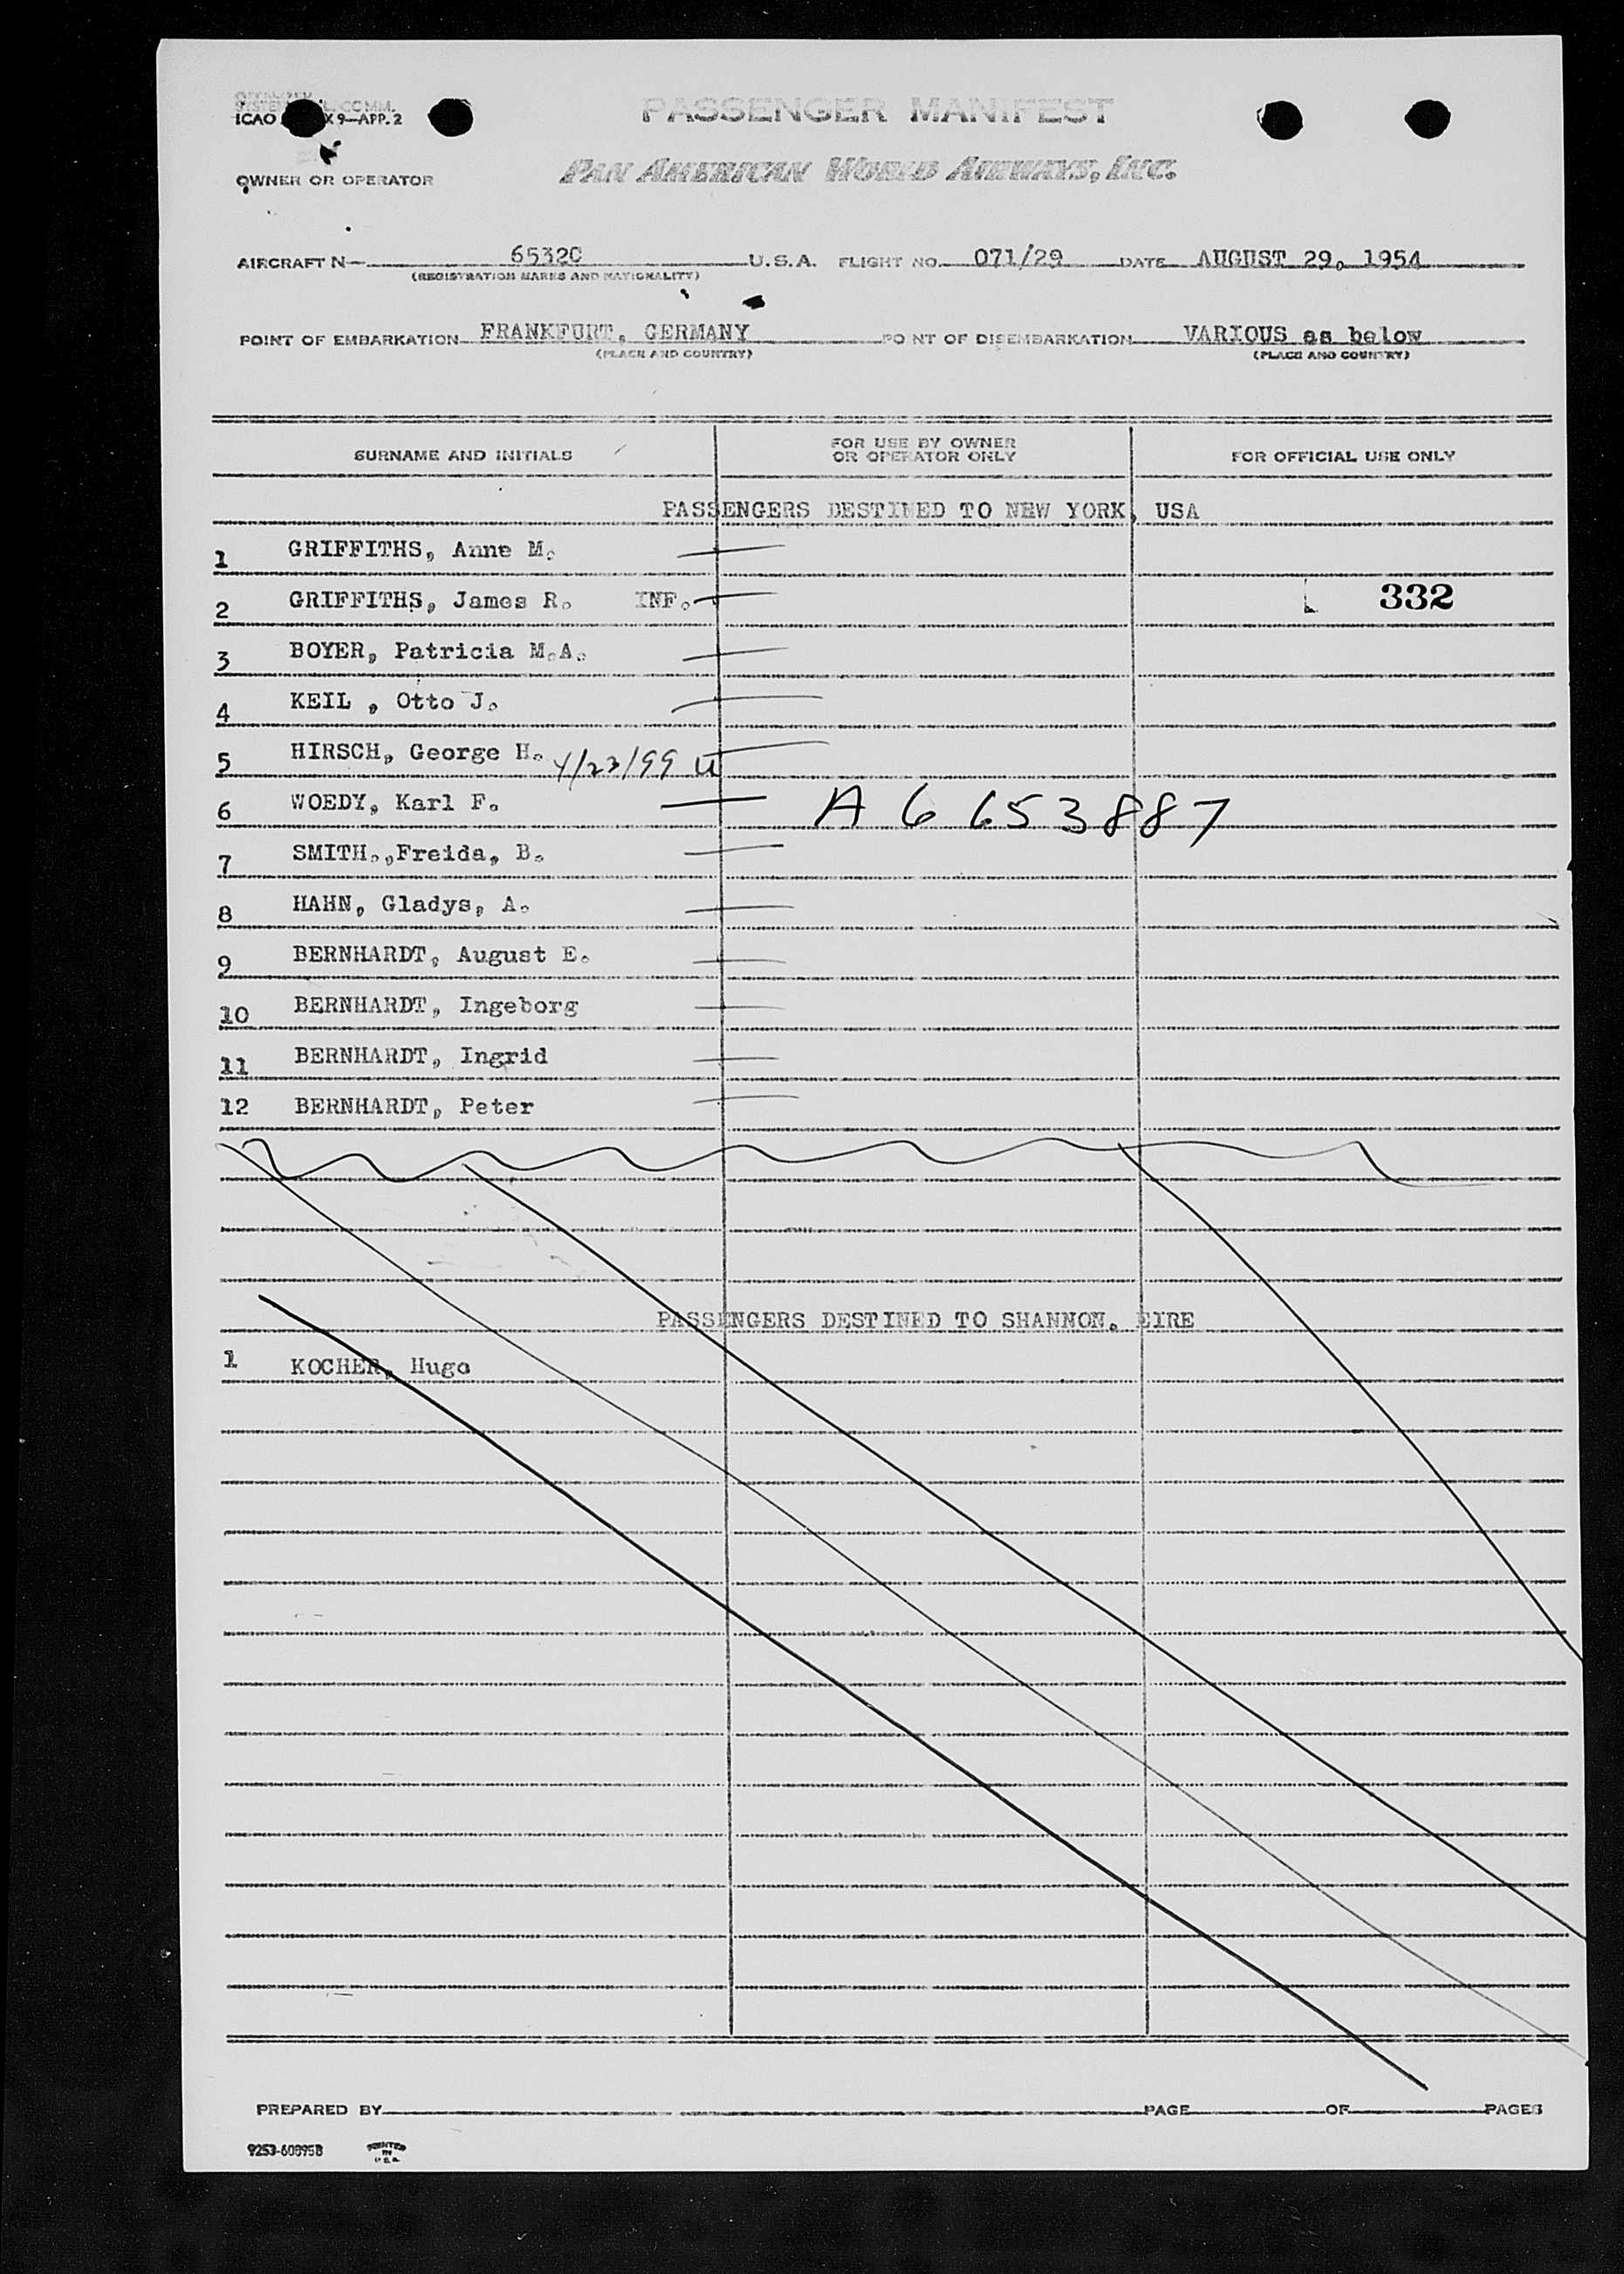 PASSENGER MANIFEST
ICAO X 9—APP. 2
OWNER OR OPERATOR
PAN AMERICAN WORLD AIRWAYS, INC.
AIRCRAFT N— 65320 U.S.A. FLIGHT NO. 071/29 DATE AUGUST 29, 1954
(REGISTRATION MARKS AND NATIONALITY)
POINT OF EMBARKATION FRANKFURT, GERMANY POINT OF DISEMBARKATION VARIOUS as below
(PLACE AND COUNTRY) (PLACE AND COUNTRY)
SURNAME AND INITIALS FOR USE BY OWNER OR OPERATOR ONLY FOR OFFICIAL USE ONLY
PASSENGERS DESTINED TO NEW YORK, USA
1 GRIFFITHS, Anne M.
2 GRIFFITHS, James R. INF. 332
3 BOYER, Patricia M.A.
4 KEIL , Otto J.
5 HIRSCH, George H. 4/23/99 U
6 WOEDY, Karl F. A 6 653887
7 SMITH.,Freida, B.
8 HAHN, Gladys, A.
9 BERNHARDT, August E.
10 BERNHARDT, Ingeborg
11 BERNHARDT, Ingrid
12 BERNHARDT, Peter
PASSENGERS DESTINED TO SHANNON. EIRE
1 KOCHER, Hugo
PREPARED BY PAGE OF PAGES
9253-60895B PRINTED IN U.S.A.